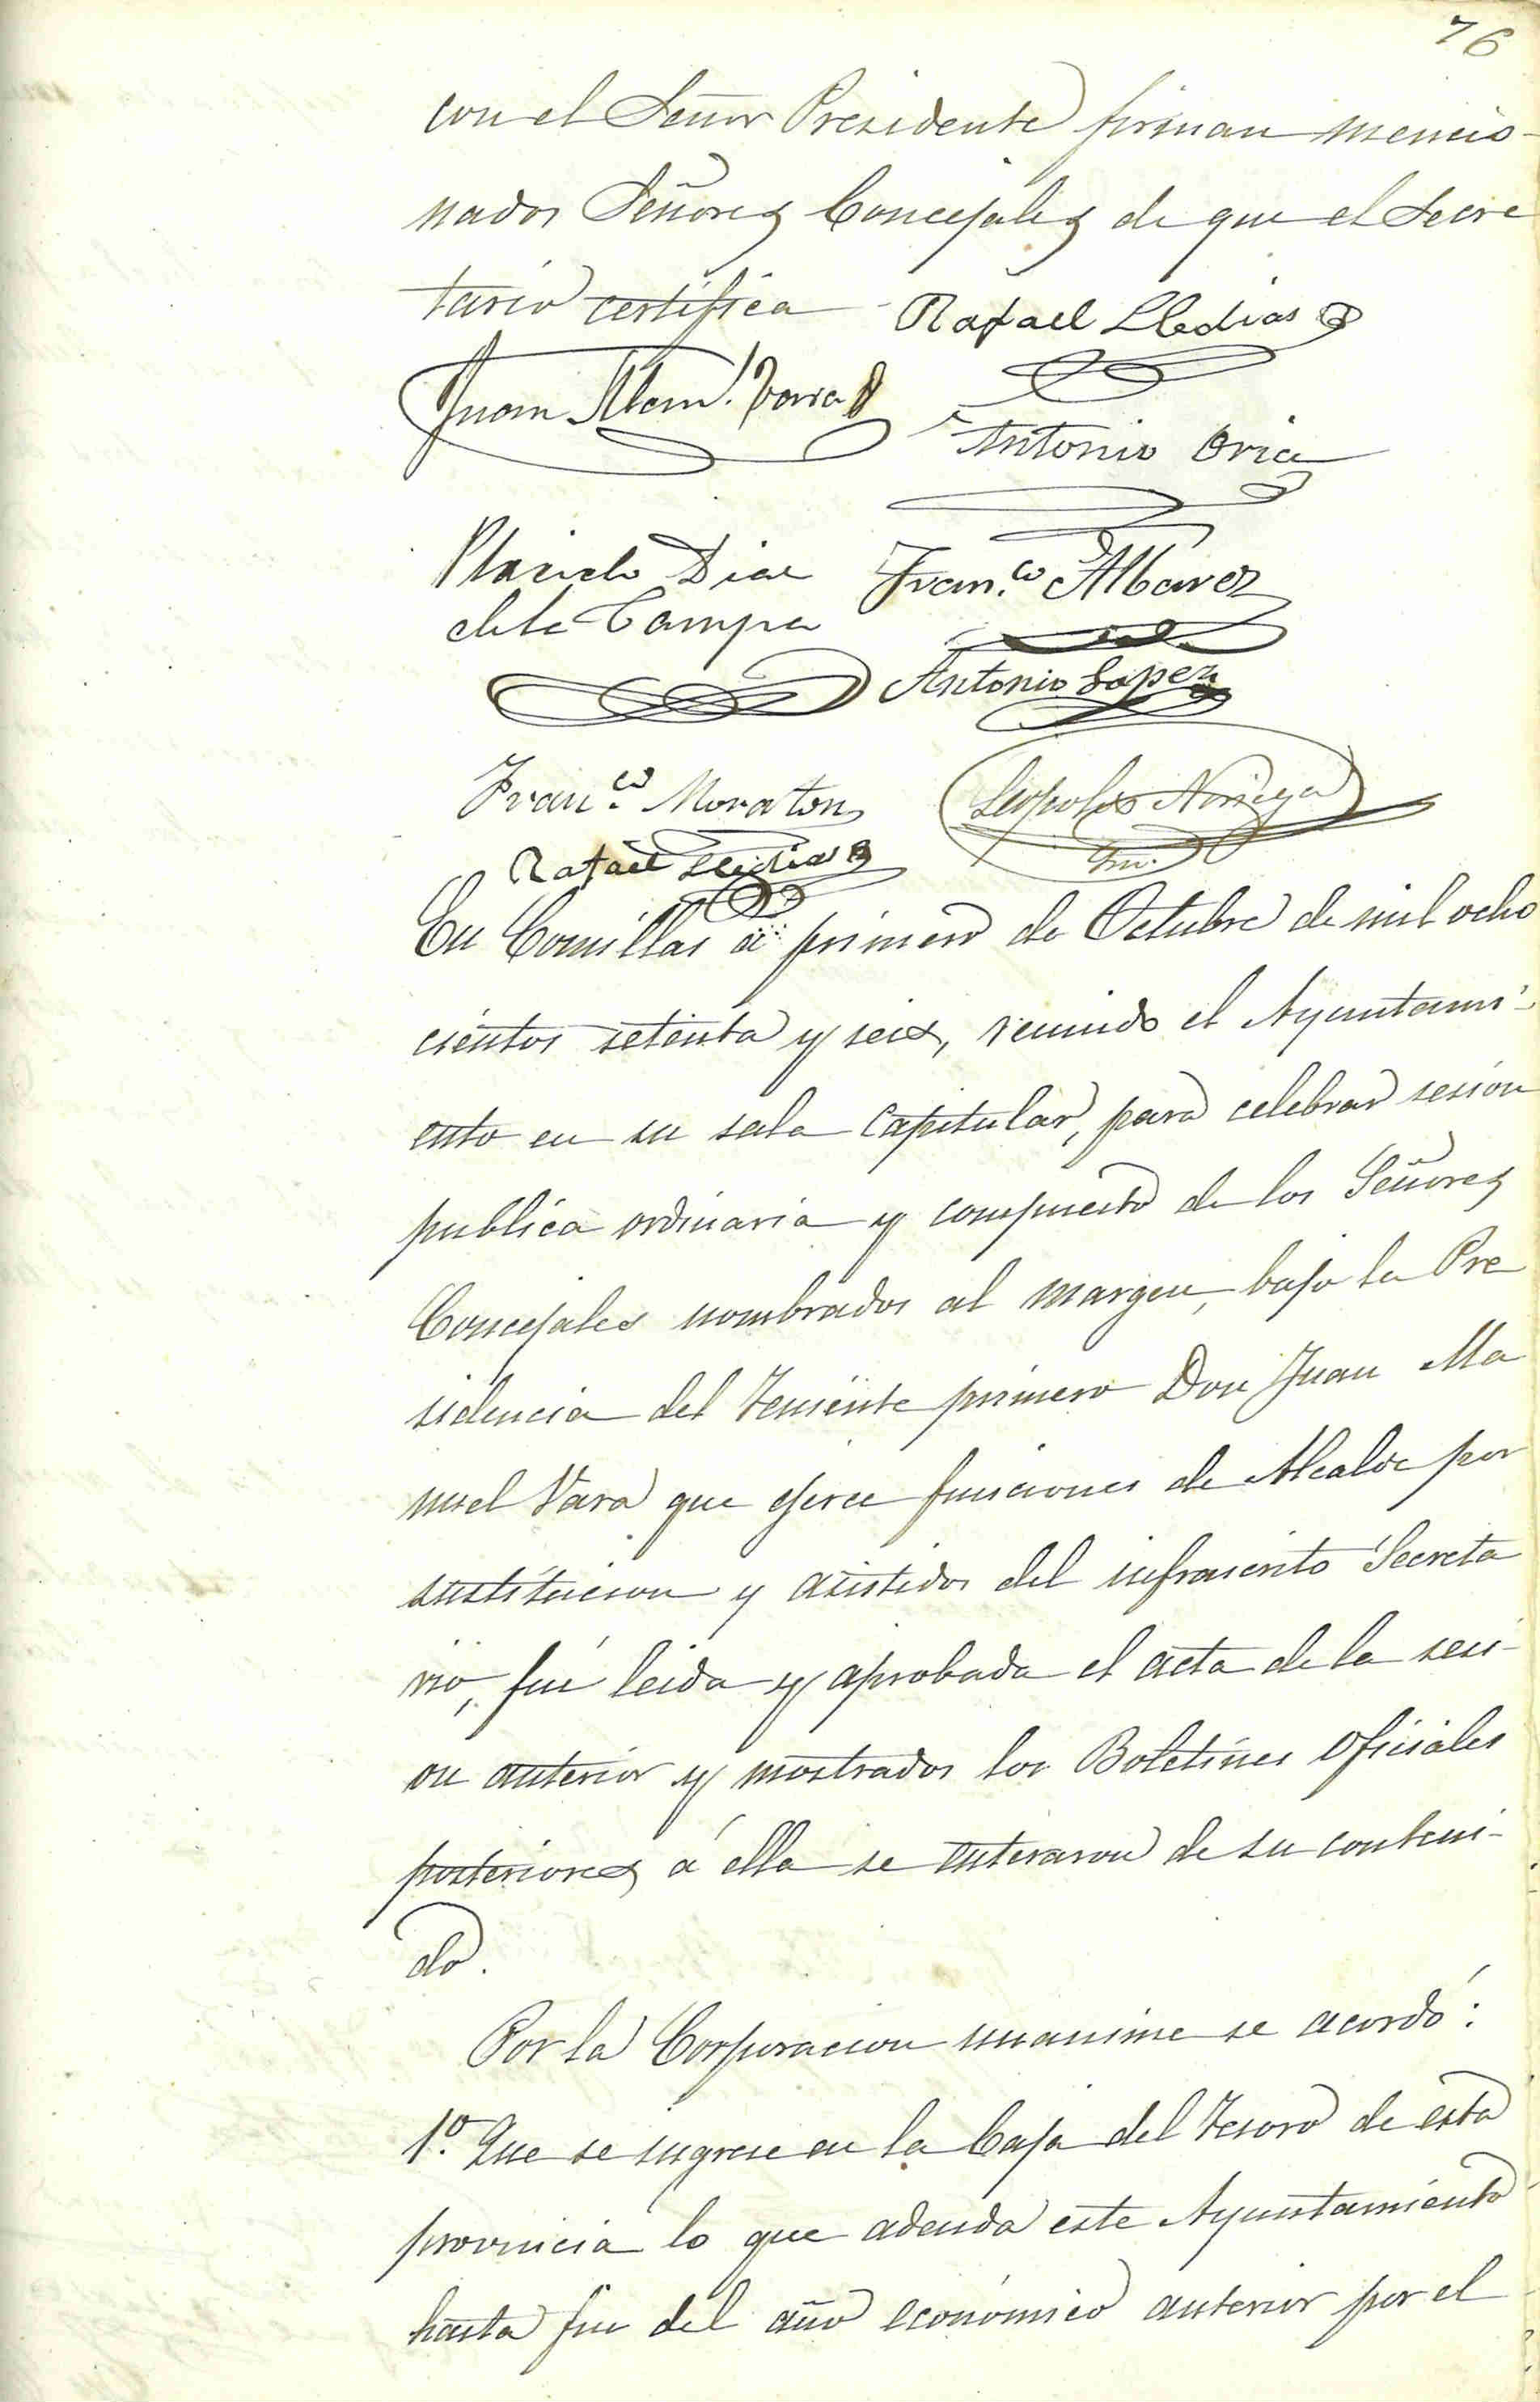 76
con el Señor Presidente firman mencio-
nados Señores Concejales de que el Secre
tario certifica Rafael Lledias
Juan Man.l Vara
Antonio Oria
Placido Diaz Fran.co Albarez
de la Campa
Antonio Lopez
Fran.co Moraton Leopoldo Noriega
Rafael Lledias
En Comillas á primero de Octubre de mil ocho
cientos setenta y seis, reunido el Ayuntami-
ento en su sala Capitular, para celebrar sesion
publica ordinaria y compuesto de los Señores
Concejales nombrados al margen, bajo la Pre
sidencia del Teniente primero Don Juan Ma
nuel Vara que ejerce funciones de Alcalde por
sustitucion y asistidos del infrascrito Secreta
rio, fué leida y aprobada el acta de la sesi-
on anterior y mostrados los Boletines oficiales
posteriores á ella se enteraron de su conteni-
do.
Por la Corporacion unanime se acordó:
1.º Que se ingrese en la Caja del Tesoro de esta
provincia lo que adeuda este Ayuntamiento
hasta fin del año económico anterior por el